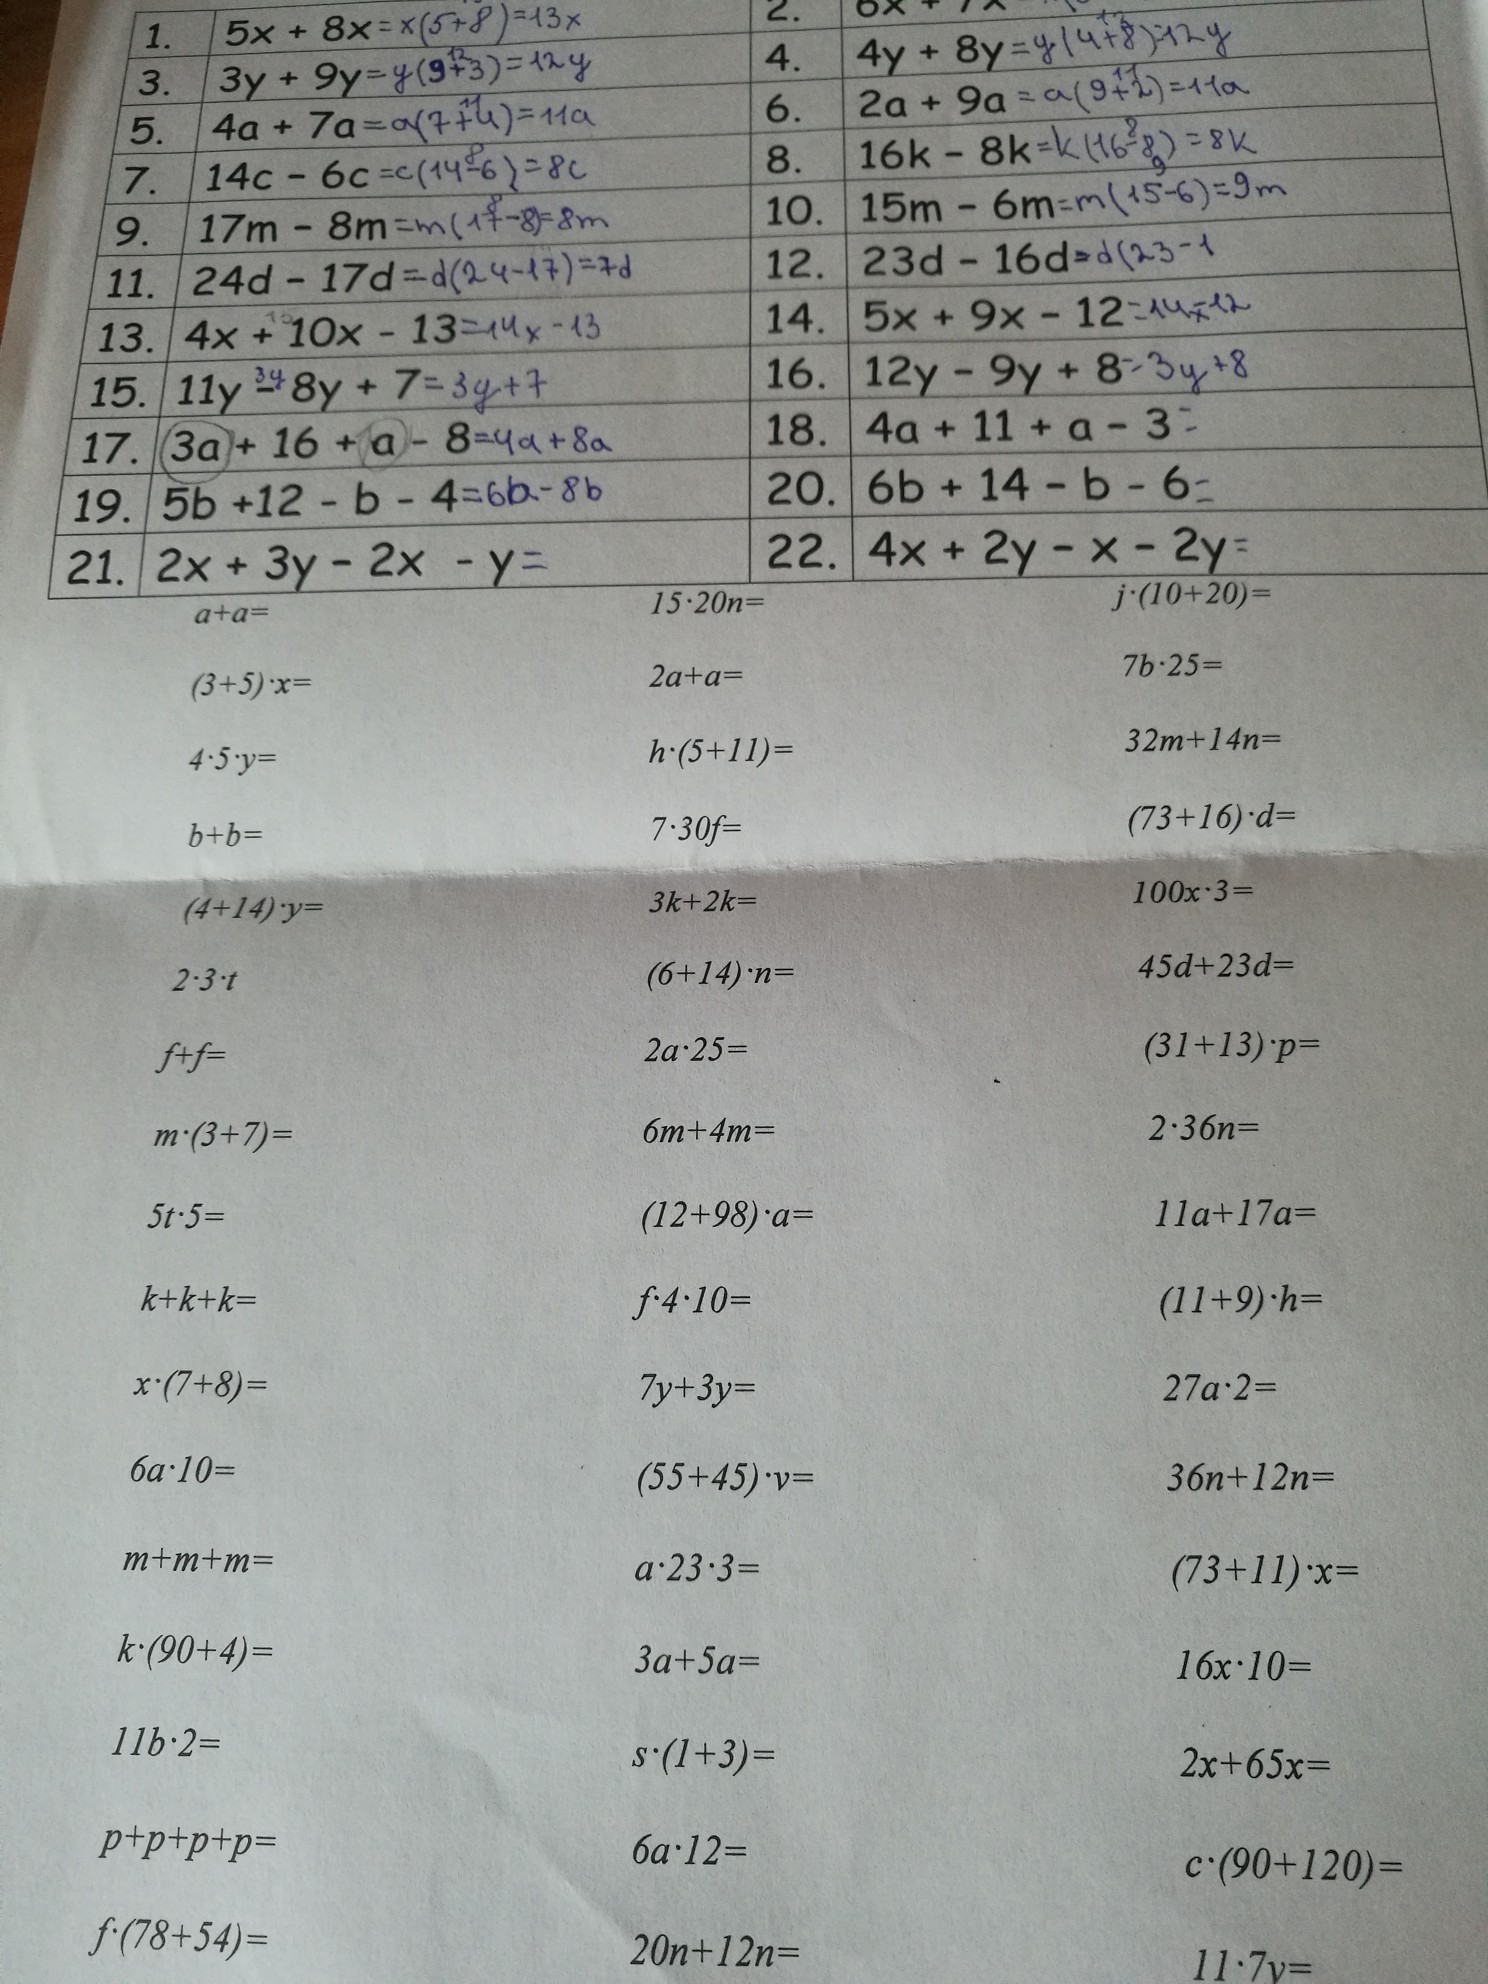 1. 5x + 8x=x(5+8)=13x 2. 6x + 7x
3. 3y + 9y=y(9+3)=12y 4. 4y + 8y=y(4+8)=12y
5. 4a + 7a=a(7+4)=11a 6. 2a + 9a=a(9+2)=11a
7. 14c - 6c=c(14-6)=8c 8. 16k - 8k=k(16-8)=8k
9. 17m - 8m=m(17-8)=8m 10. 15m - 6m=m(15-6)=9m
11. 24d - 17d=d(24-17)=7d 12. 23d - 16d=d(23-1
13. 4x + 10x - 13=14x-13 14. 5x + 9x - 12=14x-12
15. 11y - 8y + 7=3y+7 16. 12y - 9y + 8=3y+8
17. 3a + 16 + a - 8=4a+8a 18. 4a + 11 + a - 3=
19. 5b +12 - b - 4=6b-8b 20. 6b + 14 - b - 6=
21. 2x + 3y - 2x - y= 22. 4x + 2y - x - 2y=
a+a= 15·20n= j·(10+20)=
(3+5)·x= 2a+a= 7b·25=
4·5·y= h·(5+11)= 32m+14n=
b+b= 7·30f= (73+16)·d=
(4+14)·y= 3k+2k= 100x·3=
2·3·t (6+14)·n= 45d+23d=
f+f= 2a·25= (31+13)·p=
m·(3+7)= 6m+4m= 2·36n=
5t·5= (12+98)·a= 11a+17a=
k+k+k= f·4·10= (11+9)·h=
x·(7+8)= 7y+3y= 27a·2=
6a·10= (55+45)·v= 36n+12n=
m+m+m= a·23·3= (73+11)·x=
k·(90+4)= 3a+5a= 16x·10=
11b·2= s·(1+3)= 2x+65x=
p+p+p+p= 6a·12= c·(90+120)=
f·(78+54)= 20n+12n= 11·7y=